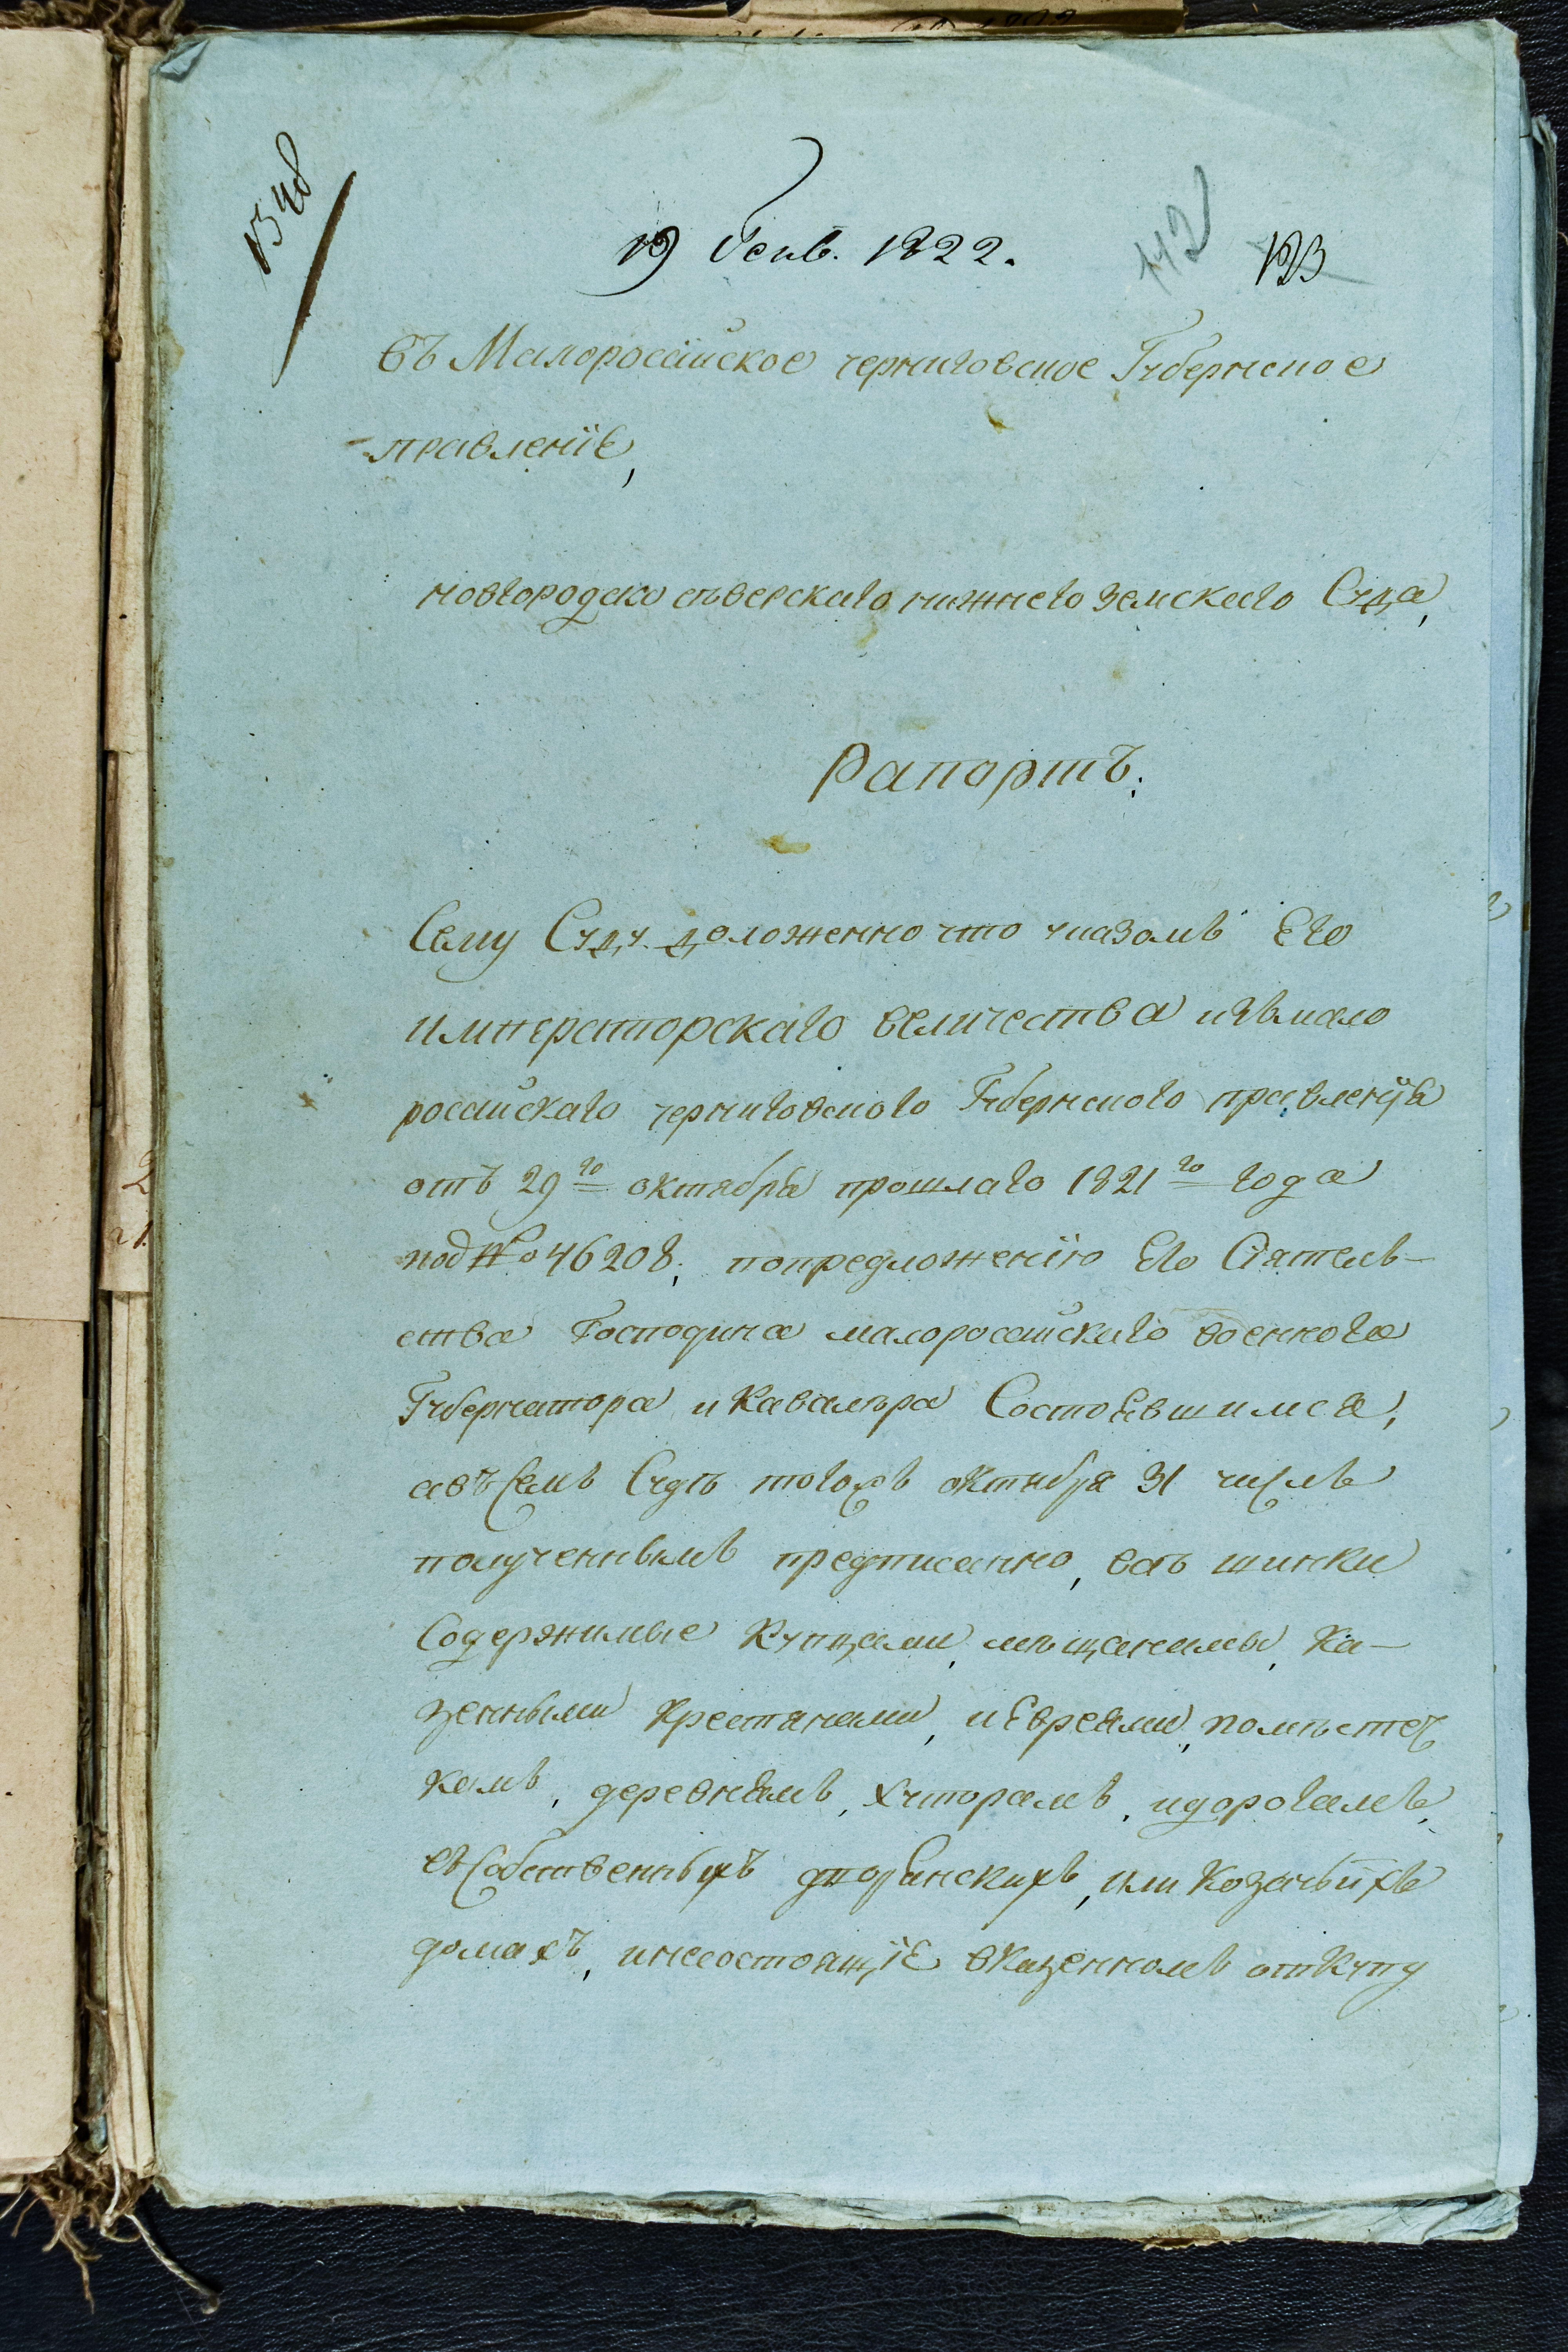 1348
19 Генв. 1822.
142
123
Въ Малороссійское черниговское Губернское
правленіе,
новгородъ северскаго нижнего земскаго Суда,
Рапортъ:
Сему Суду доложенно что указомъ Его
императорскаго величества изъ мало
российскаго черниговского Губернского правленія
отъ 29го октября прошлаго 1821го года
под № 46208, попредложенію Его Сиятель-
ства Господина малороссийскаго военнога
Губернатора и Кавалѣра Состоявшимся,
авъ Семъ Судѣ тогожъ октября 31 числа
полученнымъ предписанно, всѣ шинки
Содержимые Купцами, мѣщанами, Ка-
зенными Крестянами, и Евреями, помѣстеч
камъ, деревнямъ, хуторамъ, идорогамъ,
въ Собственныхъ дворянскихъ, или Козачьихъ
домахъ, инесостоящіе вказенномъ откупу